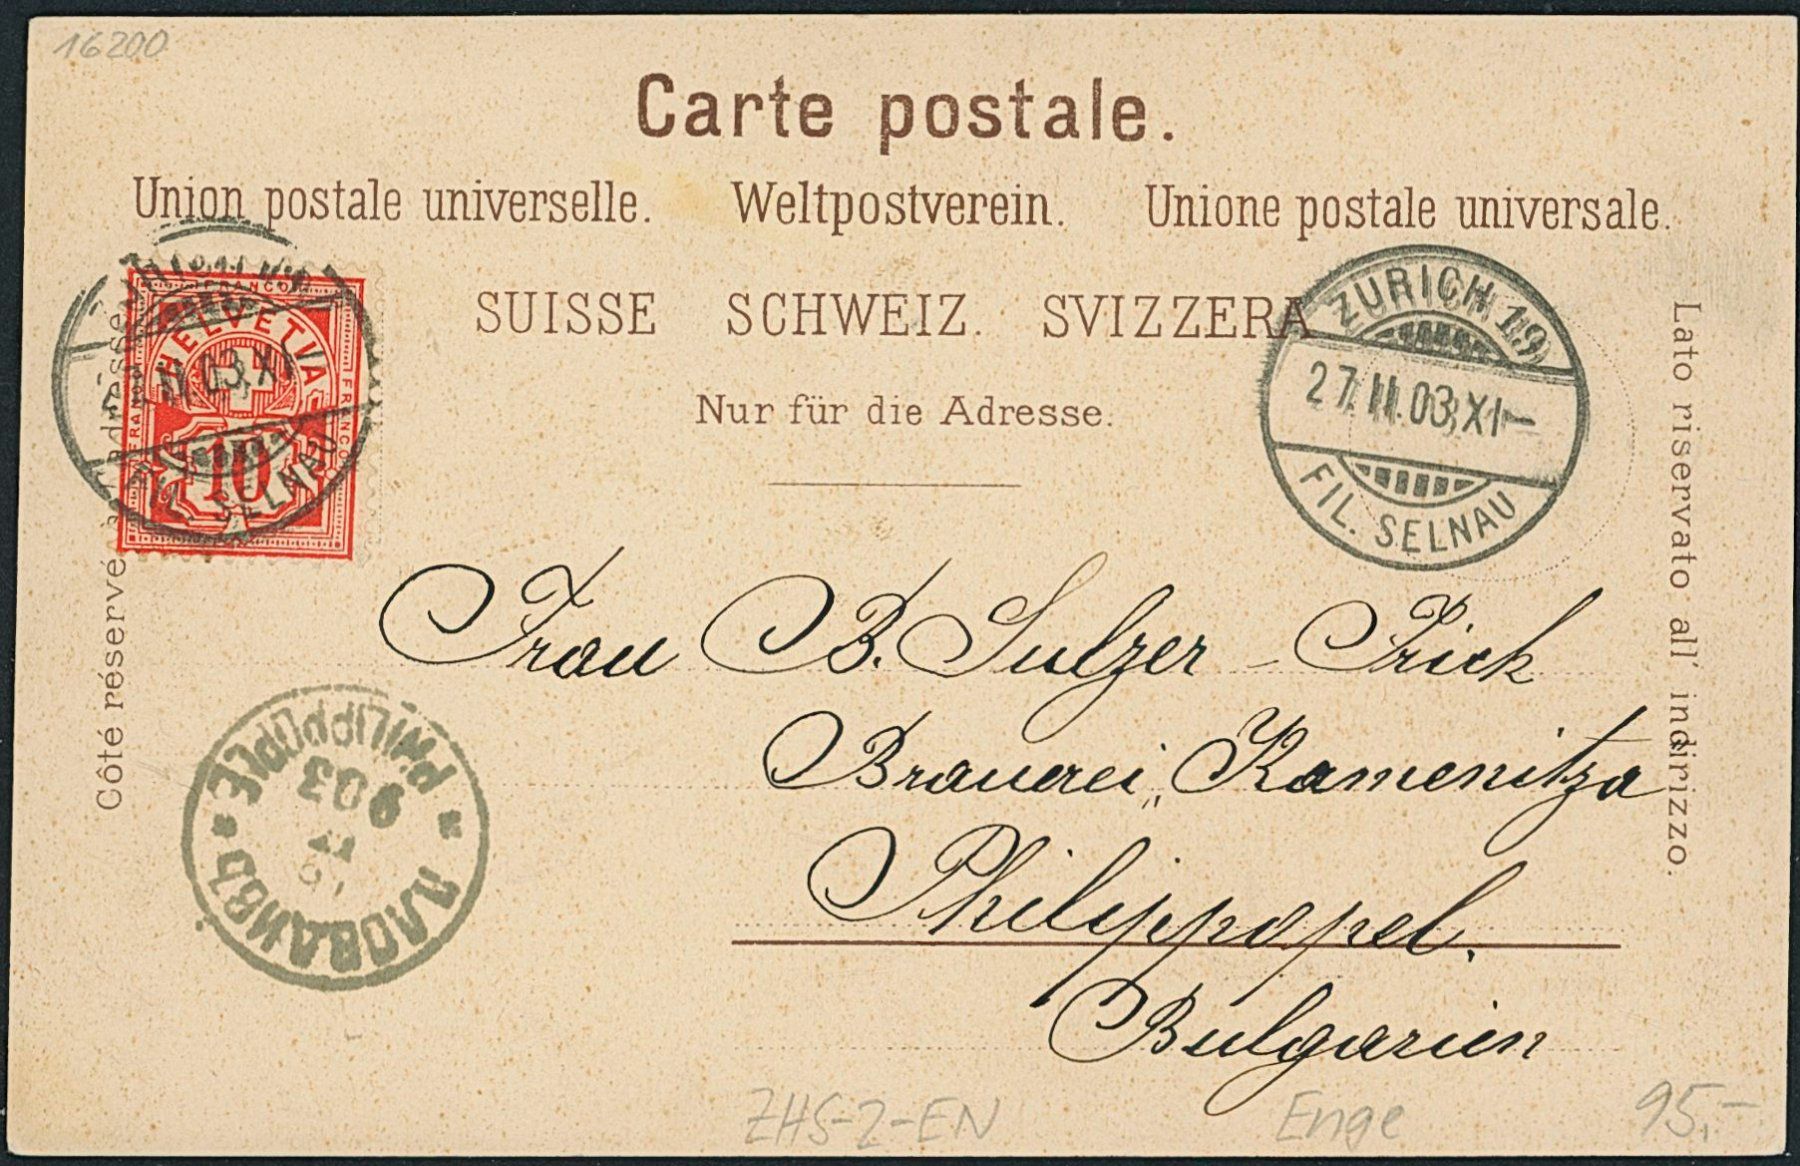 16200
Carte postale.
Union postale universelle. Weltpostverein. Unione postale universale.
SUISSE SCHWEIZ. SVIZZERA
Nur für die Adresse.
Côté réservé à l'adresse
Lato riservato all' indirizzo.
FRANCO
HELVETIA
FRANCO
FRANCO
10
II.03.XI
FIL. SELNAU
ZÜRICH 19
27.II.03.XI—
FIL. SELNAU
Frau B. Sulzer - Frick
Brauerei „Kamenitza
Philippopel.
Bulgarien
PHILIPPOPLE
903
ПЛОВДИВЪ
ZHS-2-EN Enge 95.-